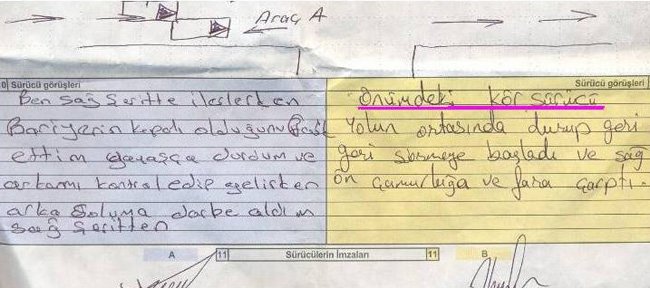 Araç A
10 Sürücü görüşleri
Ben sağ şeritte ilerlerken
Bariyerin kapalı olduğunu fark
ettim yavaşça durdum ve
arkamı kontrol edip gelirken
arka soluma darbe aldım
sağ şeritten
Sürücü görüşleri
Önümdeki kör sürücü
Yolun ortasında durup geri
geri sürmeye başladı ve sağ
ön çamurluğa ve fara çarptı.
A 11 Sürücülerin İmzaları 11 B